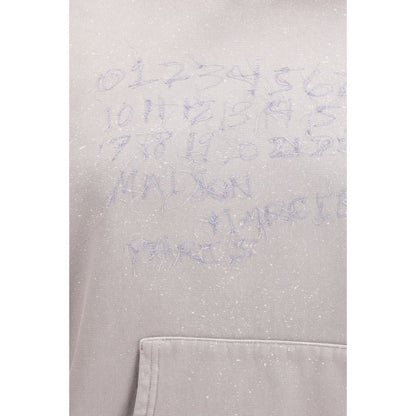 0 1 2 3 4 5 6 7
10 11 12 13 14 15
17 18 19 20 21 22
MAISON
MARGIE
PARIS